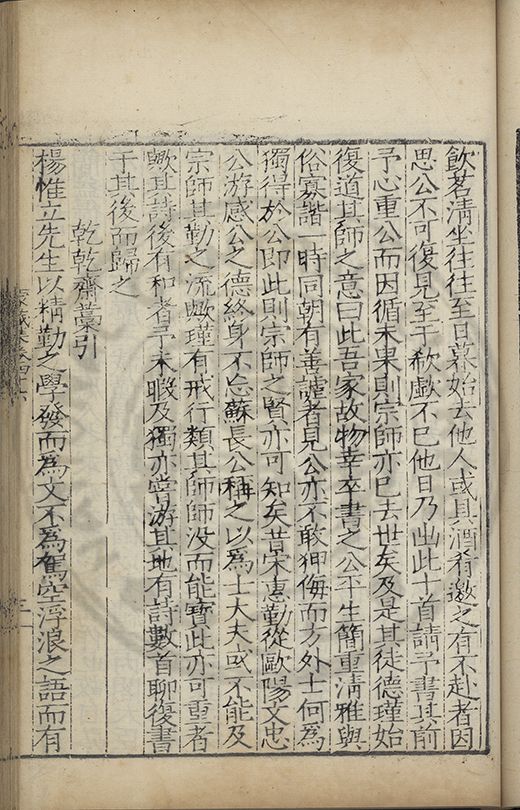 飲茗清坐往往至日暮始去他人或具酒肴邀之有不赴者因
思公不可復見至于欷歔不已他日乃出此十首請予書其前
予心重公而因循未果則宗師亦已去世矣及是其徒德瑾始
復道其師之意曰此吾家故物幸卒書之公平生簡重清雅與
俗寡諧一時同朝有善謔者見公亦不敢狎侮而方外士何為
獨得於公即此則宗師之賢亦可知矣昔宋惠勤從歐陽文忠
公游感公之德終身不忘蘇長公稱之以為士大夫或不能及
宗師其勤之流歟瑾有戒行類其師師沒而能寶此亦可重者
歟其詩後有和者予未暇及獨亦嘗游其地有詩數首聊復書
于其後而歸之
乾乾齋藁引
楊惟立先生以精勤之學發而為文不為駕空浮浪之語而有
家藏集卷四十六